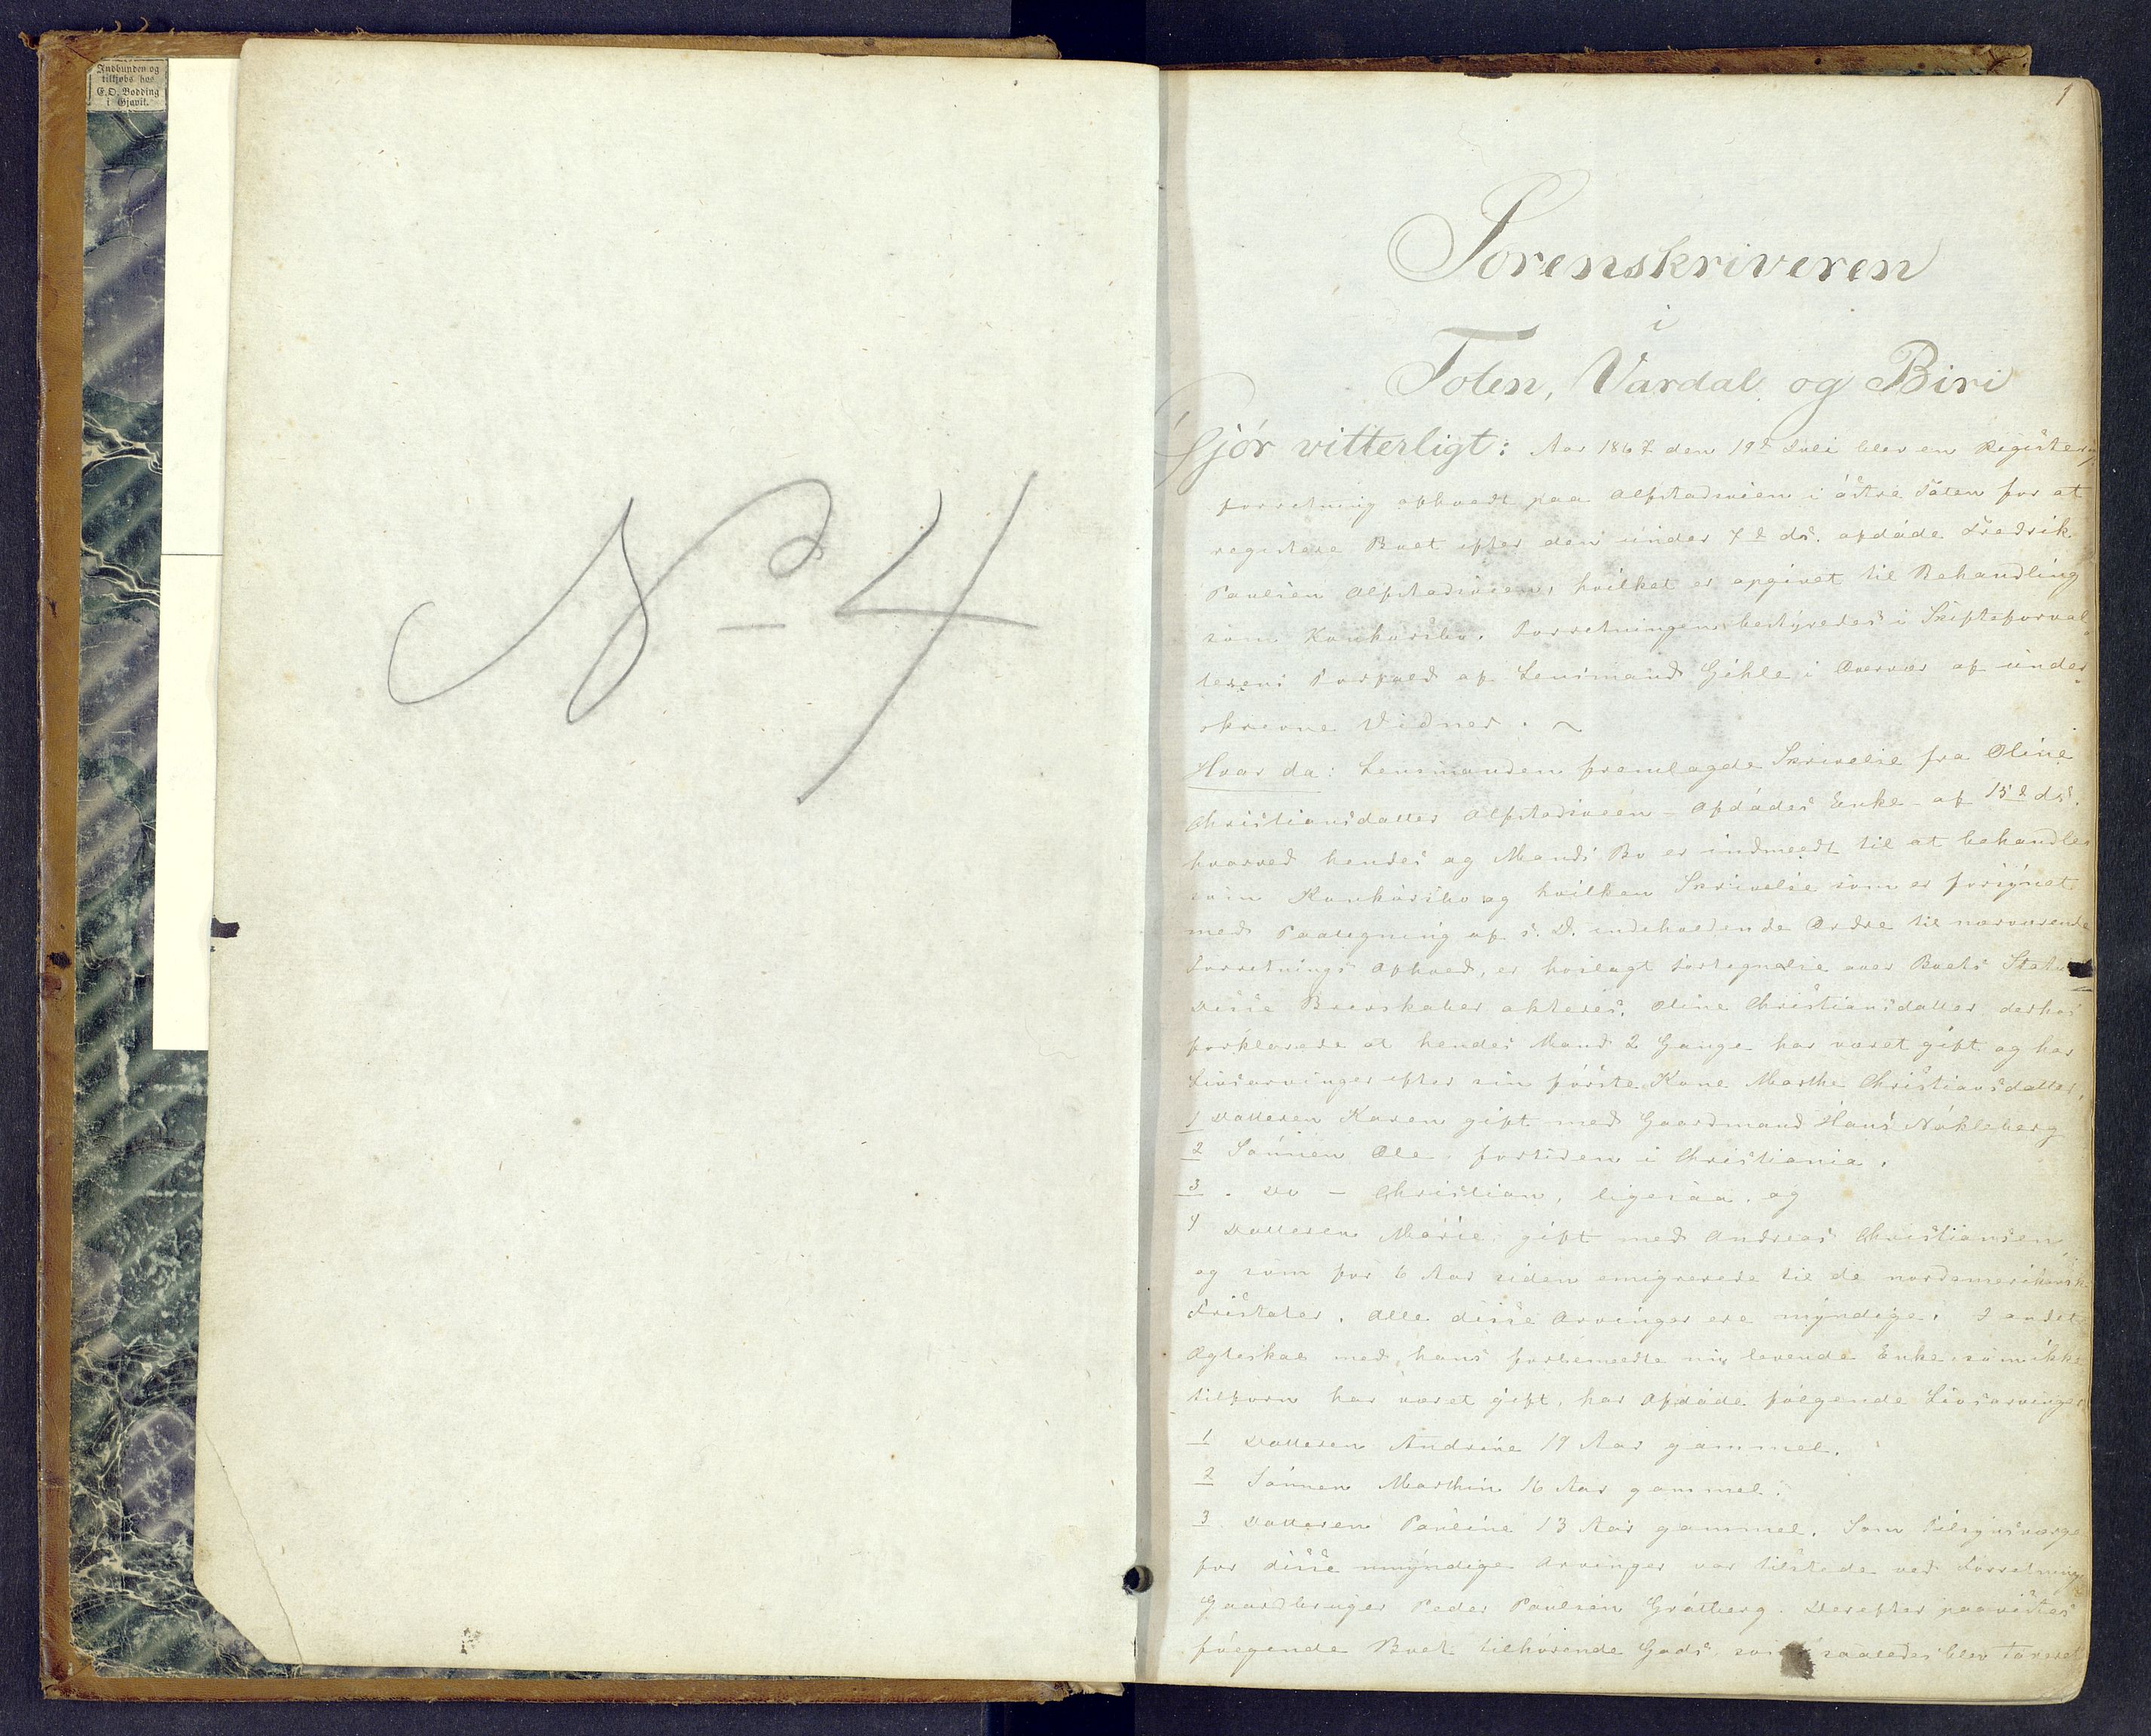 Indbunden og
tilkjøbs hos
E.O. Bodding
i Gjøvik.
No 4
1
Sorenskriveren
i
Toten, Vardal og Biri
Gjör vitterligt: Aar 1867 den 19d Juli blev en Registerings
forretning afholdt paa Alfstadveien i östre Toten for at
registere Boet efter den under 7d ds. afdöde Fredrik
Paulsen Alfstadveien, hvilket er opgivet til Behandling
som Konkursbo. Forretningen bestyredes i Skifteforval-
terens Forfald af Lensmand Gihle i Overvær af under-
skrevne Vidner. ~
Hvor da: Lensmanden fremlagde Skrivelse fra Oline
Christiansdatter Alfstadveien – Afdödes Enke – af 15d ds.
hvorved hendes og Mands Bo er indmeldt til at behandles
som Konkursbo og hvilken Skrivelse som er forsynet
med Paategning af s. D. indeholdende Ordre til nærværende
Forretnings Afhold, er hoslagt Fortegnelse over Boets Status
Disse Brevskaber akteres. Oline Christiansdatter derhos
forklarede at hendes Mand 2 Gange har været gift og har
Livsarvinger efter sin förste Kone Marthe Christiansdatter,
1 Datteren Karen gift med Gaardmand Hans Nökleberg
2 Sönnen Ole fortiden i Christiania.
3 . Do – Christian, ligesaa, og
4 Datteren Marie gift med Andreas Christiansen
og som for 6 Aar siden emigrerede til de nordamerikansk
Fristater. Alle disse Arvinger ere myndige. I andet
Ægteskab med hans forbemeldte nu levende Enke, som ikke
tilforn har været gift, har Afdöde fölgende Livsarvinger
1 Datteren Andrine 19 Aar gammel.
2 Sönnen Marthin 16 Aar gammel.
3 Datteren Pauline 13 Aar gammel. Som Tilsynsværge
for disse umyndige Arvinger var tilstede ved Forretningen
Gaardbruger Peder Paulsen Gråtberg. Derefter paavistes
fölgende Boet tilhörende Gods som saaledes blev taxeret